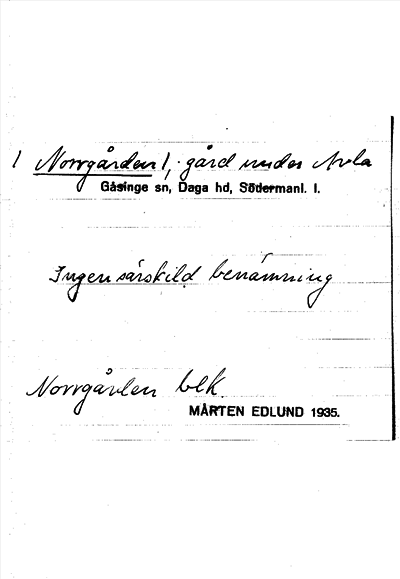 / Norrgården /, gård under Avla
Gåsinge sn, Daga hd, Södermanl. l.
Ingen särskild benämning
Norrgårlen blk.
MÅRTEN EDLUND 1935.